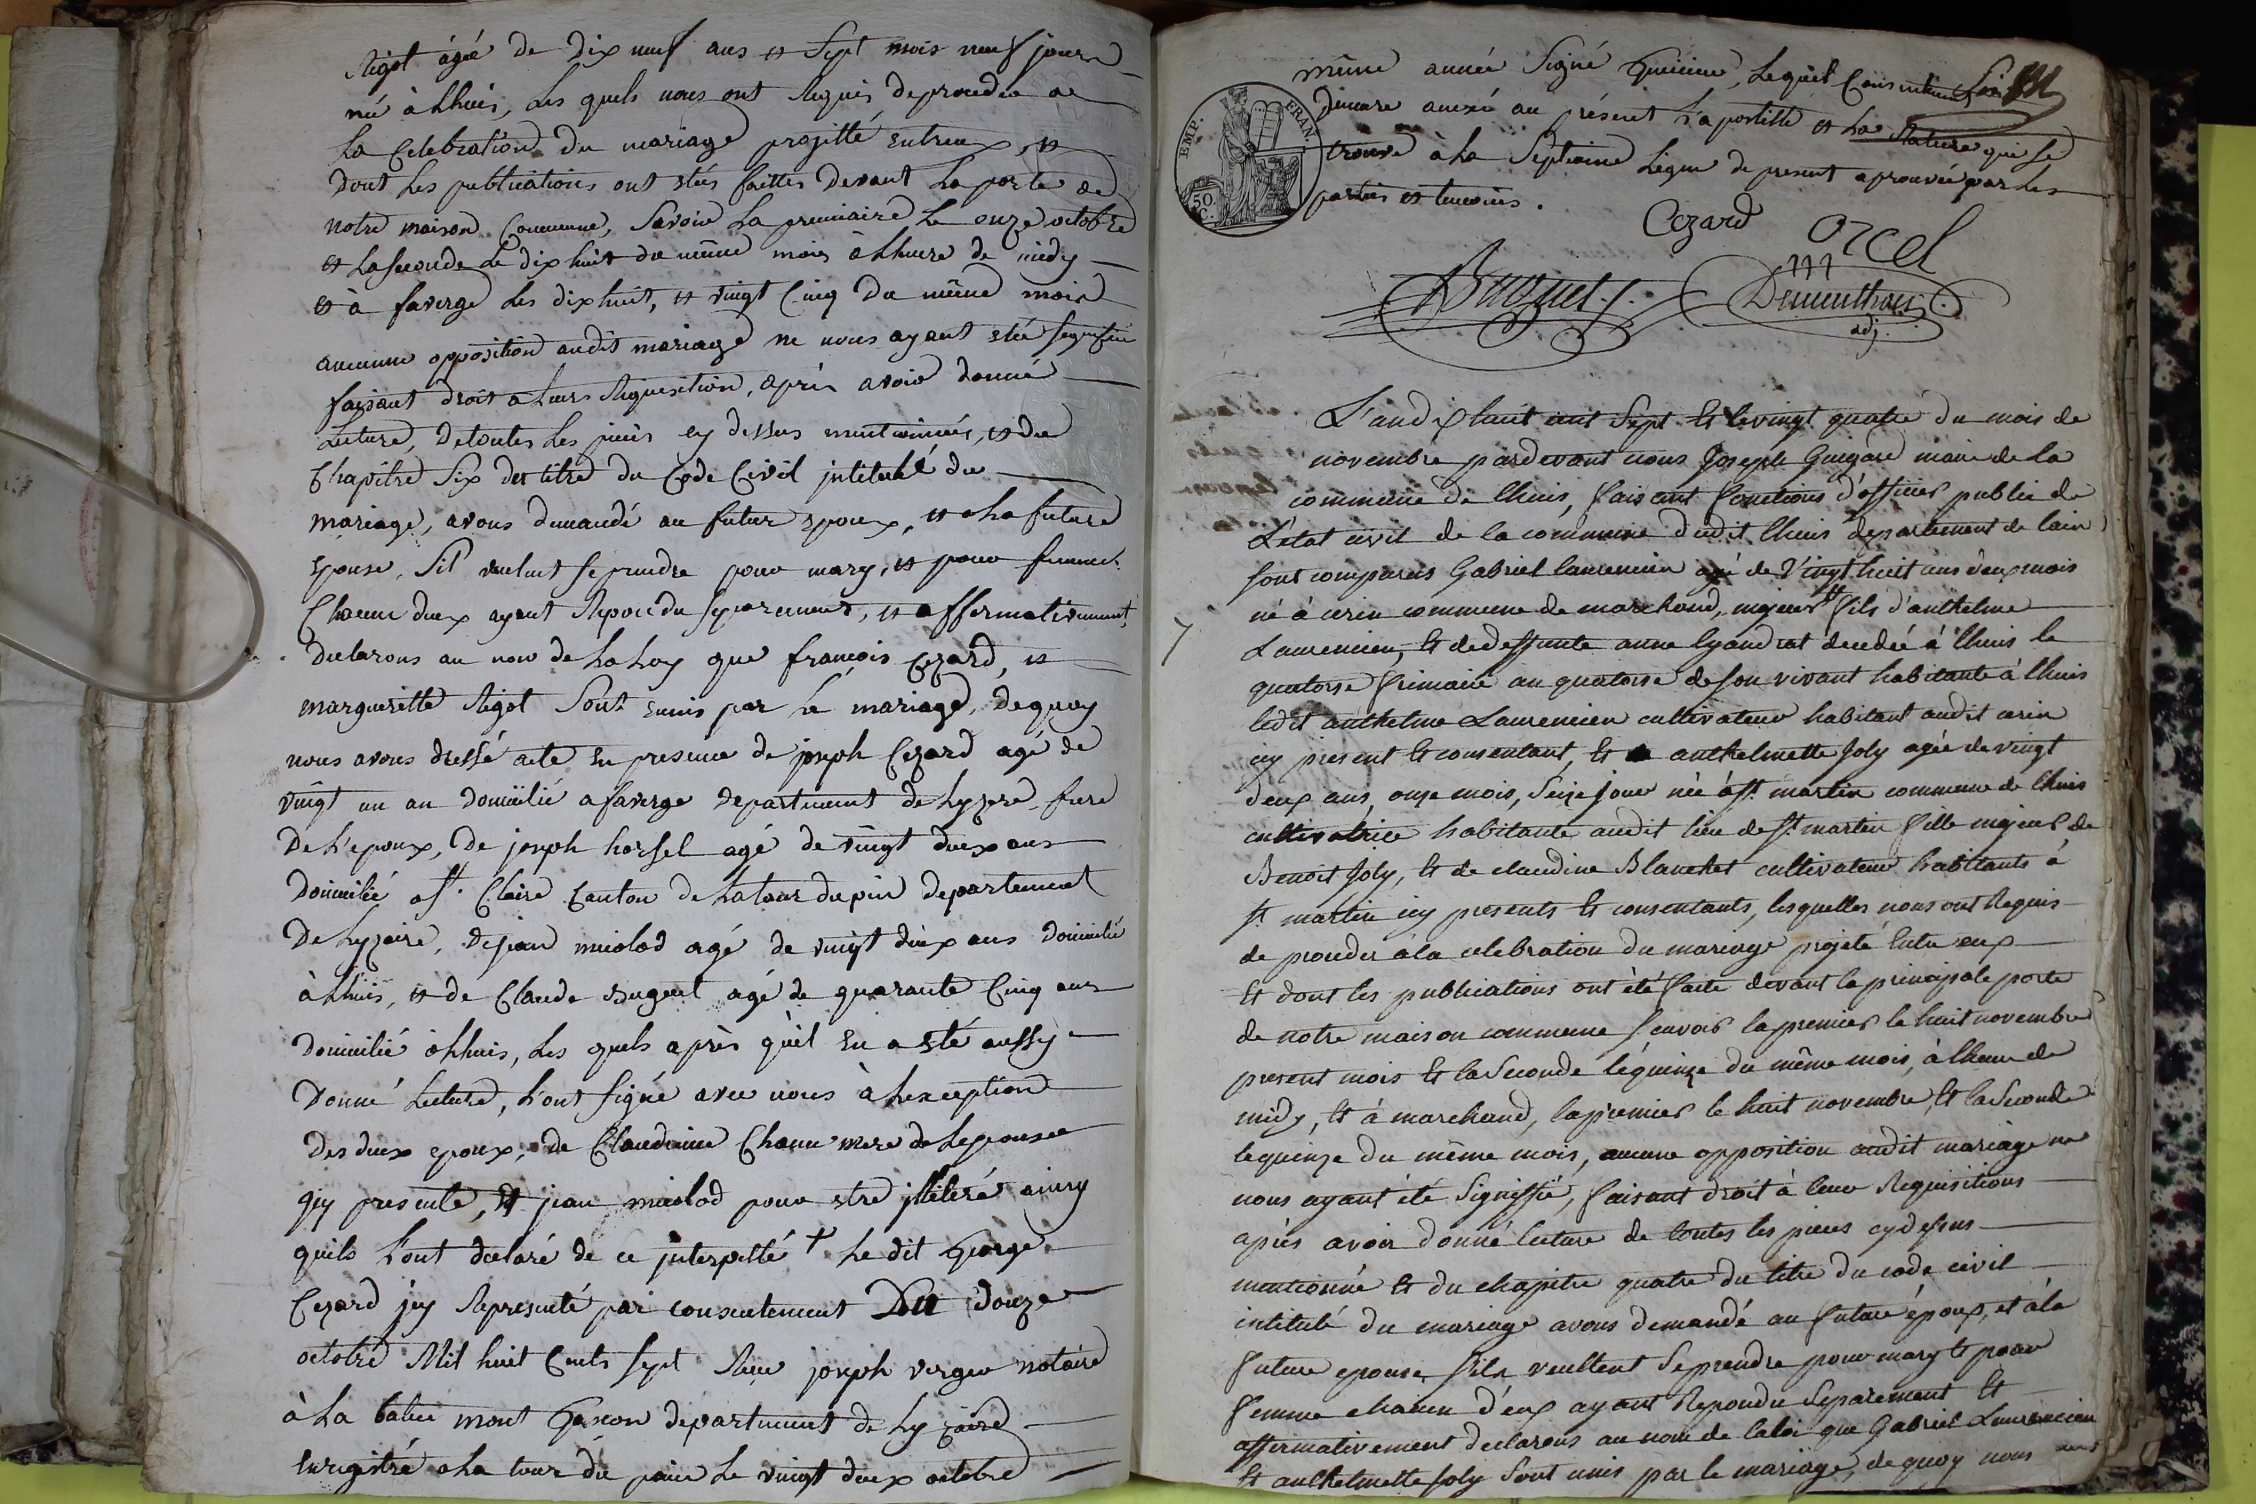 Rigot agée de dix neuf ans et Sept mois neuf jours
né à Lhuis, les quels nous ont Requis de proceder a
La Celebration du mariage projetté entreux, et
dont Les publications ont etés faittes devant La porte de
notre maison Commune, Savoir La premiaire Le onze octobre
et La seconde Le dix huit du même mois à Lheure de midy
et à faverge Les dix huit, et vingt Cinq du même mois
aucunne opposition audit mariage ne nous ayant eté segnifié
faisant droit a Leurs Requisition, après avoir donné
Lecture, de toutes Les pieces cy dessus mentionnées, et du
Chapitre Six du titre du Code Civil jntitulé du
mariage, avons demandé au futur epoux, et a La future
epouse, Sil veulent se prendre pour mary, et pour femme
Chacun deux ayant Repondu separement, et affermativement,
declarons au nom de La Loy que françois Cezard, et
margueritte Rigot Sont unis par Le mariage, de quoy
nous avons dressé acte en presence de joseph Cezard agé de
vingt un an domicilié a faverge departement de Lyzere frere
de L'epoux, de joseph horsel agé de vingt deux ans
domicilié a St. Claire Canton de La tour du pin departement
de Lyzaire, de jean miolod agé de vingt deux ans domicilié
à Lhuis, et de Claude Buguet agé de quarante Cinq ans
domicilié à Lhuis, Les quels après qu'il en a eté aussy
donné Lecture, L'ont signé avec nous à Lexception
des deux epoux, de Claudinne mere de Lepouse
jcy presente, et jean miolod pour etre jlliteré ainsy
quils L'ont declaré de ce jnterpellé + Le dit George
Cezard jcy Representé par consentement Du douze
octobre Mil huit Cents sept Reçu joseph verger notaire
à La batie mont Gascon departement de Lyzaire
enregistré a La tour du pain Le vingt deux octobre
même année Signé Lequel Consentement
demeure anexé au présent L'apostille et La Rature qui se
trouve à La Septieme Ligne du present aprouvée par Les
parties et temoins.
EMP. FRAN.
50 C.
Cezard
Orcel
Buguet
Dementhon
adj.
L'an dix huit cent Sept Et le vingt quatre du mois de
novembre pardevant nous Joseph Guigard maire de la
commune de lhuis, faisant fonctions d'officier public de
L'état civil de la commune dudit lhuis departement de lain
sont comparus Gabriel laurencin agé de vingt huit ans deux mois
né à cerin commune de marchand, majeur Et fils d'anthelme
Laurencin, Et de deffunte anne lyaudrat decedée à lhuis le
quatorse frimaire an quatorse de son vivant habitante à lhuis
ledit anthelme Laurencin cultivateur habitant audit cerin
icy present Et consentant, Et anthelmette Joly agée de vingt
deux ans, onze mois, seize jour née à St. martin commune de lhuis
cultivatrice habitante audit lieu de St. martin fille majeur de
Benoit Joly, Et de claudine Blanchet cultivateur habitants à
St. martin icy presents Et consentants, lesquelles nous ont Requis
de proceder à la celebration du mariage projeté Entre eux
Et dont les publications ont été faite devant la principale porte
de notre maison commune scavoir la premier le huit novembre
present mois Et la Seconde le quinze du même mois, à lheure de
midy, Et à marchand, la premier le huit novembre, Et la Seconde
le quinze du même mois, aucune opposition audit mariage ne
nous ayant été Signiffié, faisant droit à leur Requisitions
après avoir donné lecture de toutes les pieces cy dessus
mentionné Et du chapitre quatre du titre du code civil
intitulé du mariage avons demandé au future époux, et à la
future epouse s'ils veullent Se prendre pour mary Et pour
femme chacun d'eux ayant Repondu Separement Et
affirmativement declarons au nom de la loi que Gabriel Laurencin
Et anthelmette Joly Sont unis par le mariage, de quoy nous avons